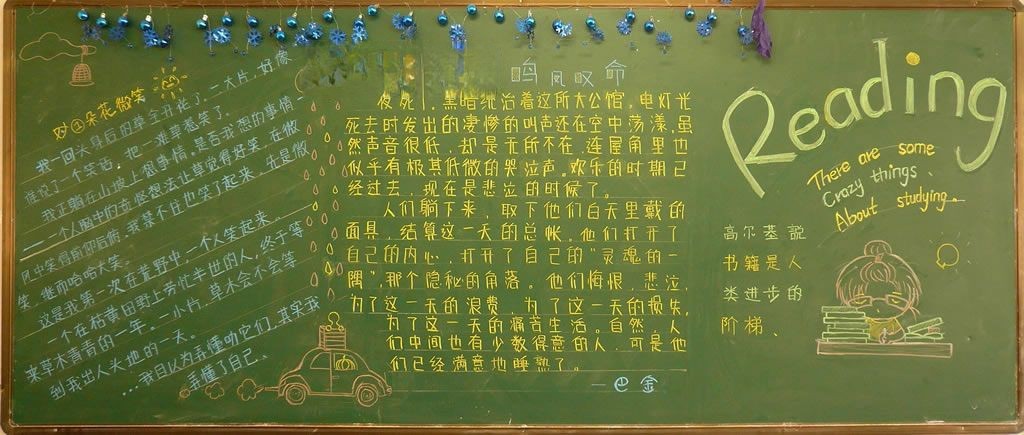 妙①朵花微笑
我一回头身后的草全开花了.一大片.好像
谁说了一个笑话.把一滩草惹笑了.
我正躺在山坡上想事情.是否我想的事情一
一一个人脑中的奇怪想法让草觉得好笑.在微
风中笑得前仰后俯.我禁不住也笑了起来.先是微
笑.继而哈哈大笑.
这是我第一次在荒野中,一个人笑起来.
一个在枯黄田野上劳忙半世的人,终于等
来草木青青的一年.一小片.草木会不会等
到我出人头地的一天。
...我自以为弄懂听它们,其实我
弄懂了自己、
鸣凤叹命
夜死了,黑暗统治着这所大公馆。电灯光
死去时发出的凄惨的叫声还在空中荡漾,虽
然声音很低,却是无所不在,连屋角里也
似乎有极其低微的哭泣声。欢乐的时期已
经过去,现在是悲泣的时候了。
人们躺下来,取下他们白天里戴的
面具,结算这一天的总帐。他们打开了
自己的内心,打开了自己的"灵魂的一
隅",那个隐秘的角落。他们悔恨,悲泣,
为了这一天的浪费,为了这一天的损失,
为了这一天的痛苦生活。自然,人
们中间也有少数得意的人,可是他
们已经满意地睡熟了。
一巴金
Reading
There are some
Crazy things、
About studying。
高尔基説
书籍是人
类进步的
阶梯、